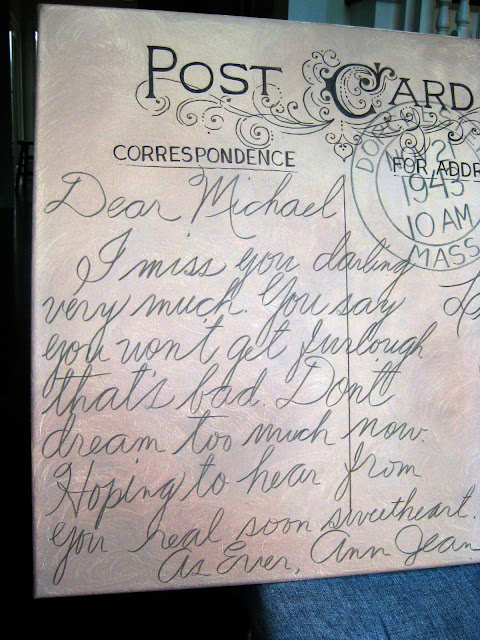 POST CARD
CORRESPONDENCE
FOR ADDR
MASS
1943
10 AM
Dear Michael
I miss you darling
very much. You say
you won't get furlough
that's bad. Don't
dream too much now.
Hoping to hear from
you real soon sweetheart.
As Ever, Ann Jean